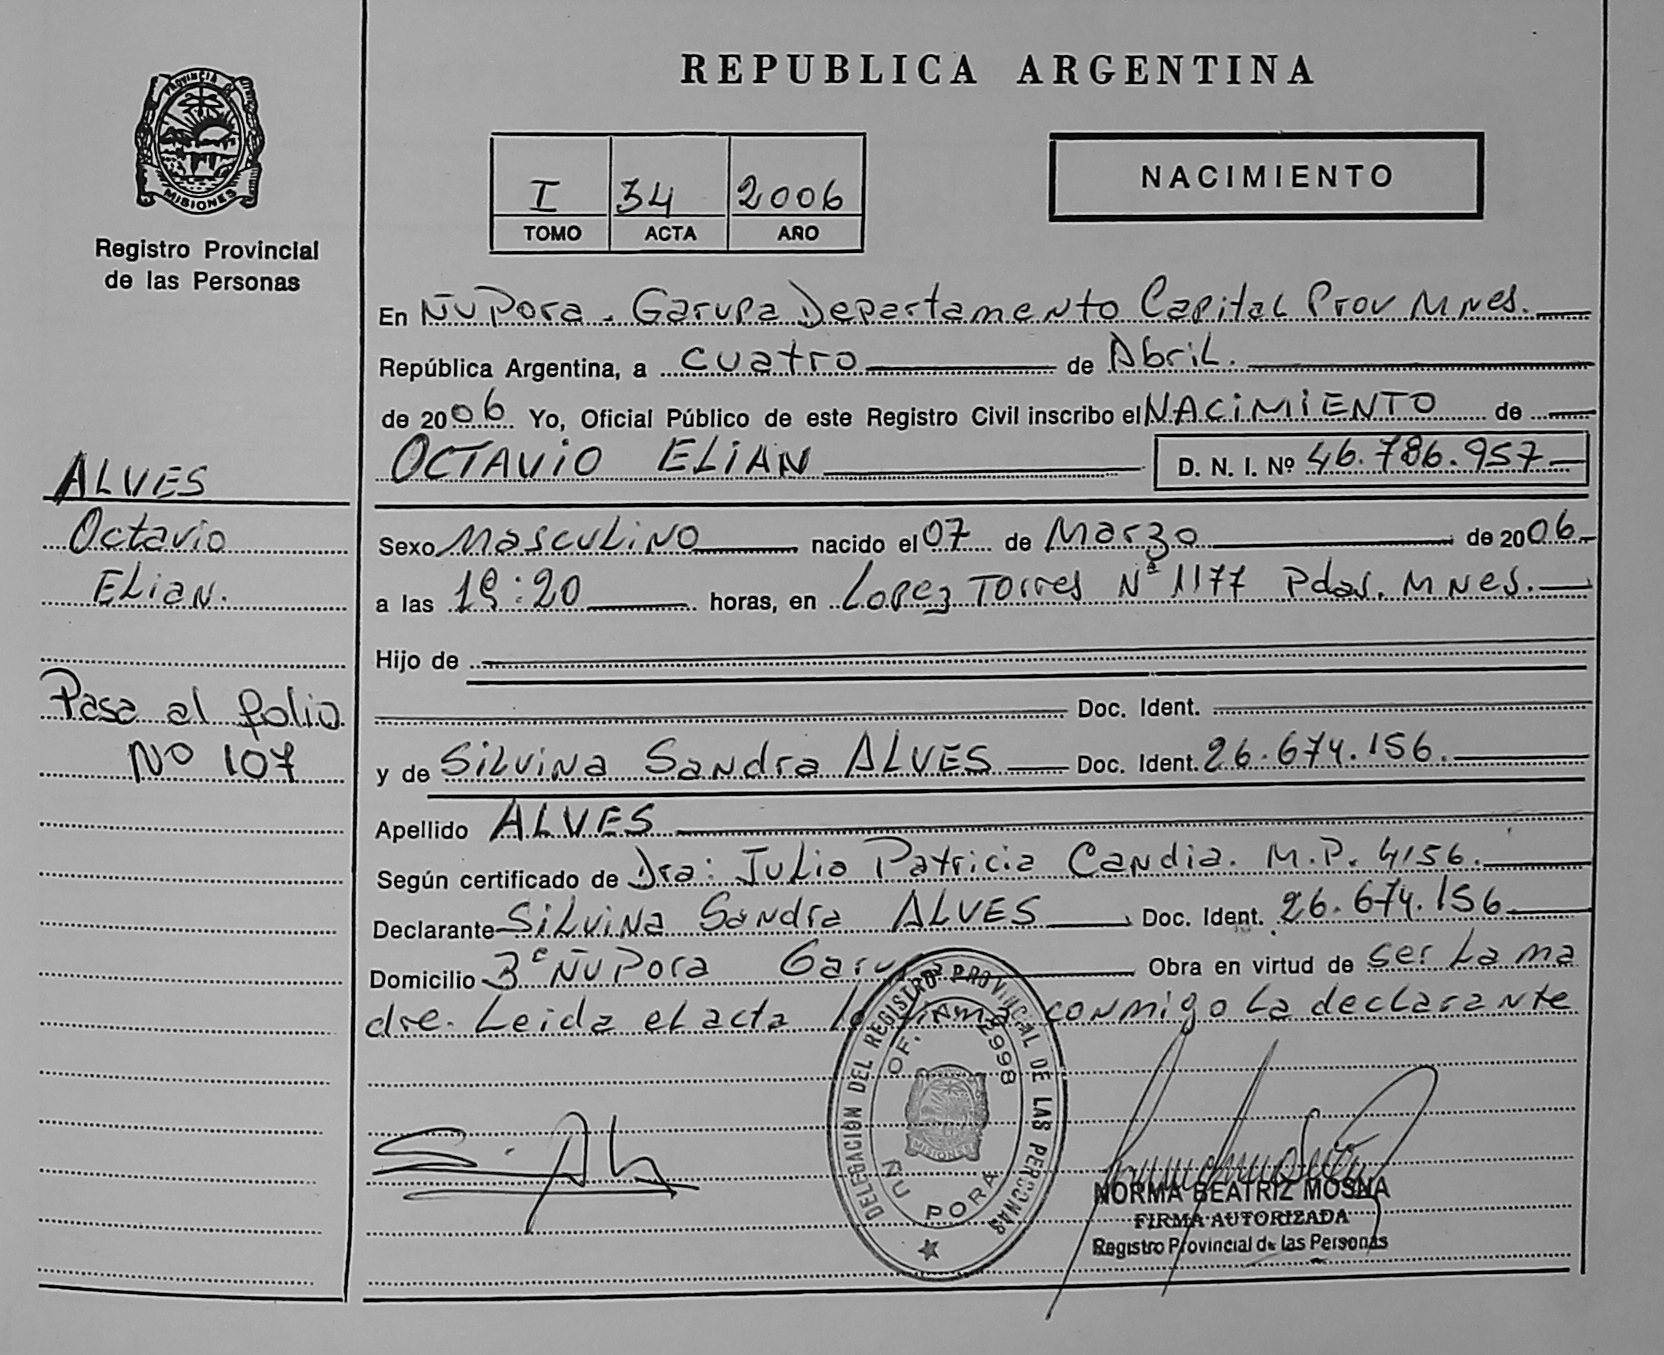 REPUBLICA ARGENTINA
PROVINCIA DE
MISIONES
Registro Provincial
de las Personas
I 34 2006
TOMO ACTA AÑO
NACIMIENTO
En Ñu Pora. Garupa Departamento Capital Prov Mnes.
República Argentina, a cuatro de Abril.
de 2006 Yo, Oficial Público de este Registro Civil inscribo el NACIMIENTO de
OCTAVIO ELIAN D. N. I. Nº 46.786.957
Sexo Masculino nacido el 07 de Marzo de 2006
a las 19:20 horas, en Lopez Torres Nº 1177 Pdas. MNes.
Hijo de
Doc. Ident.
y de Silvina Sandra ALVES Doc. Ident. 26.674.156.
Apellido ALVES
Según certificado de Dra: Julia Patricia Candia. M.P. 4156.
Declarante Silvina Sandra ALVES Doc. Ident. 26.674.156
Domicilio 3º Ñu Pora Garupa Obra en virtud de ser la ma
dre. Leida el acta la firma conmigo la declarante
ALVES
Octavio
Elian.
Pasa al folio
Nº 107
DELEGACION DEL REGISTRO PROVINCIAL DE LAS PERSONAS
OF. 2998
MISIONES
ÑU PORA
NORMA BEATRIZ MOSNA
FIRMA AUTORIZADA
Registro Provincial de las Personas